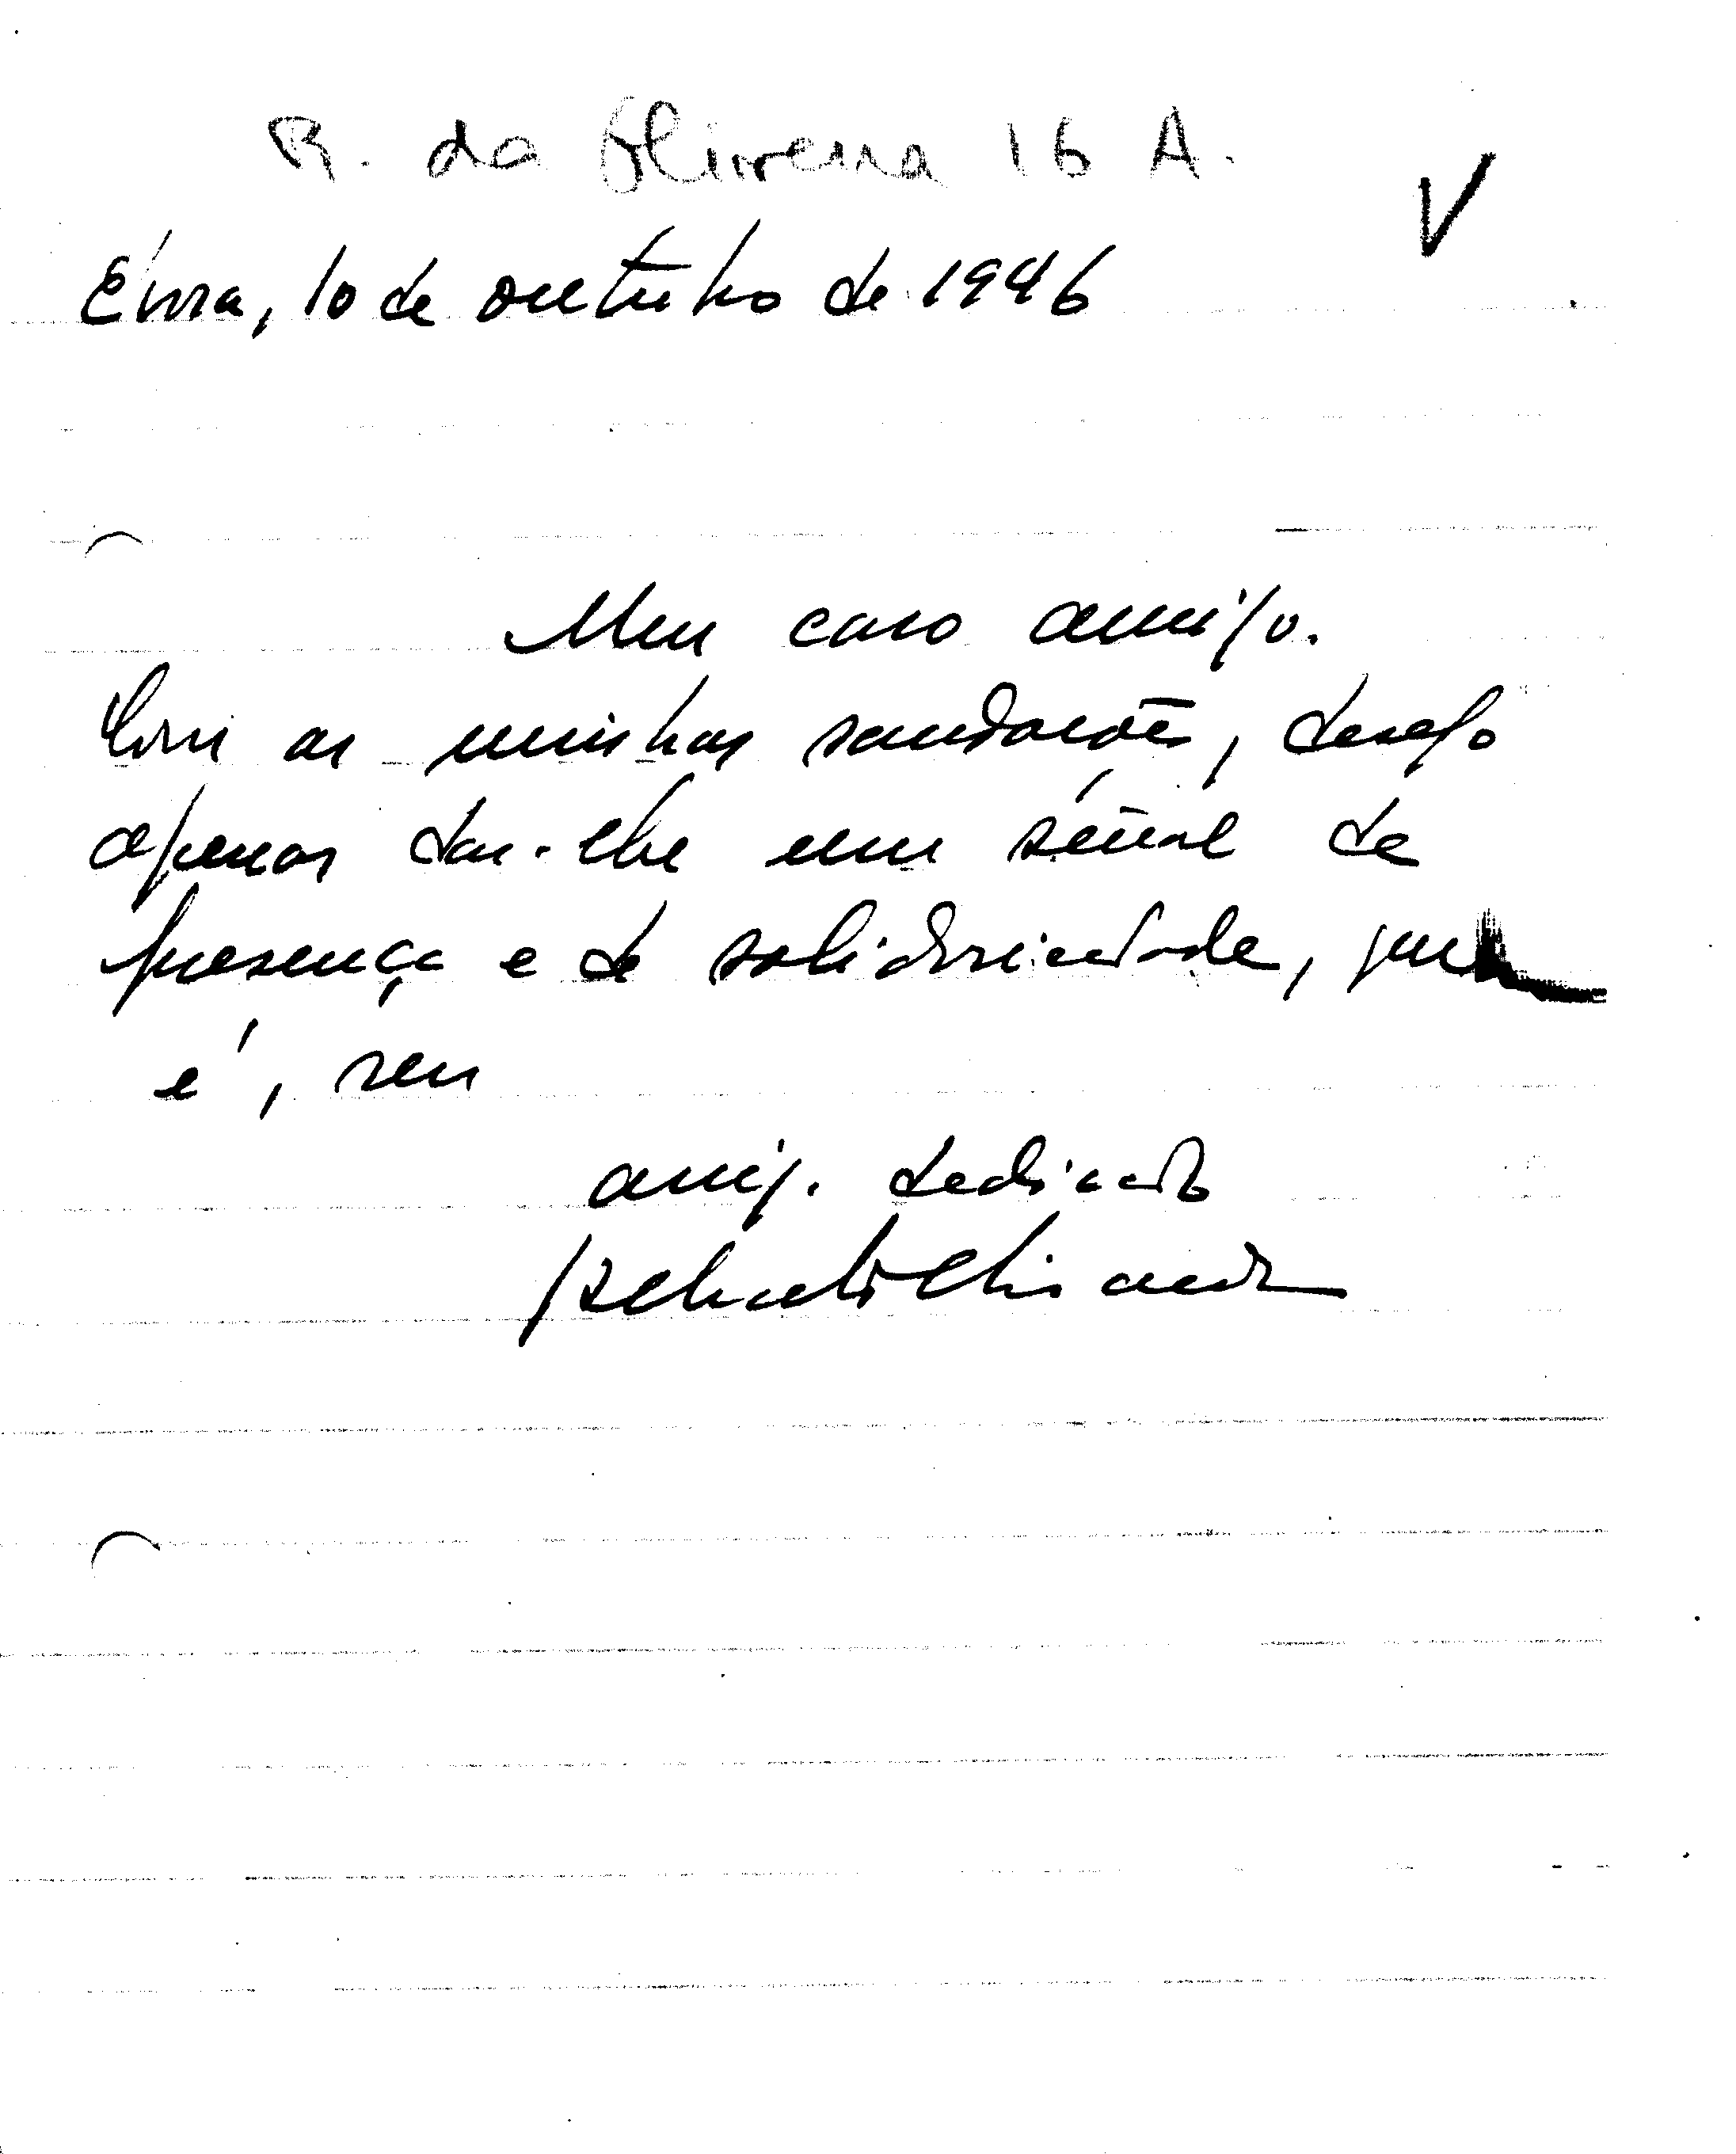 R. da Oliveira 16 A.
V
Évora, 10 de outubro de 1946
Meu caro amigo.
Com as minhas saudações, desejo
apenas dar-lhe um sinal de
presença e de solidariedade, que
é, seu
amig. dedicado